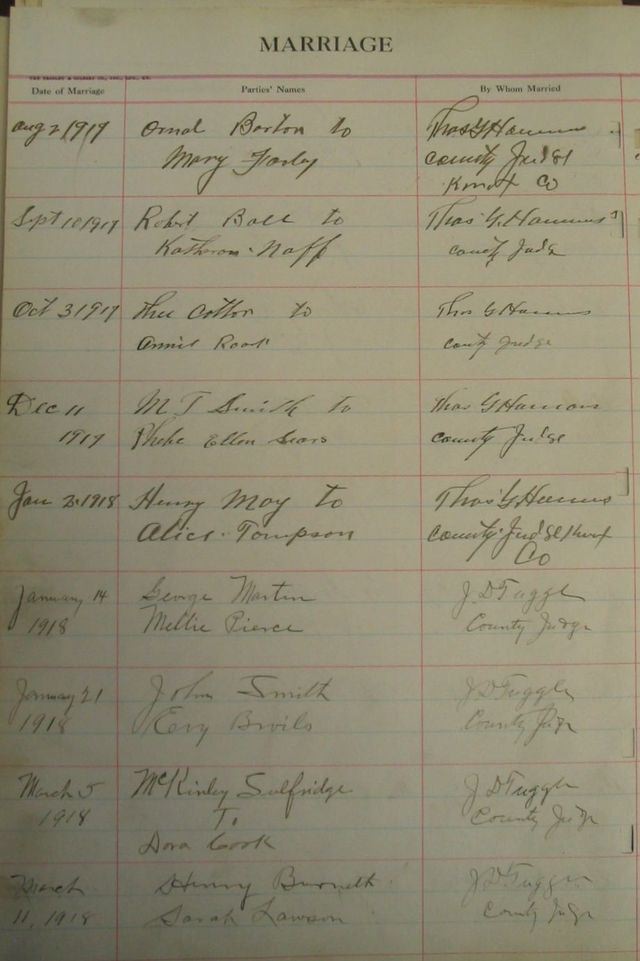 MARRIAGE
Date of Marriage Parties' Names By Whom Married
Aug 2 1917 Barton to Thos G Hammons
Mary Farley County Judge
Knox Co
Sept 18 1917 Robert Ball to Thos G. Hammons
Katheran Naff County Judge
Oct 31917 Theo Cotton to Thos G Hammons
Annie Root County Judge
Dec 11 M T Smith to Thos G Hammons
1917 Phebe Ellen Sears County Judge
Jan 2 1918 Henry May to Thos G Hammons
Alice Tompson County Judge Knox
Co
January 14 George Martin J D Tuggle
1918 Mellie Pierce County Judge
January 21 John Smith J D Tuggle
1918 County Judge
March 5 McKinley Sulfridge J D Tuggle
1918 To County Judge
Dora Cook
March Henry Burnett J. D. Tuggle
11, 1918 Sarah Lawson County Judge